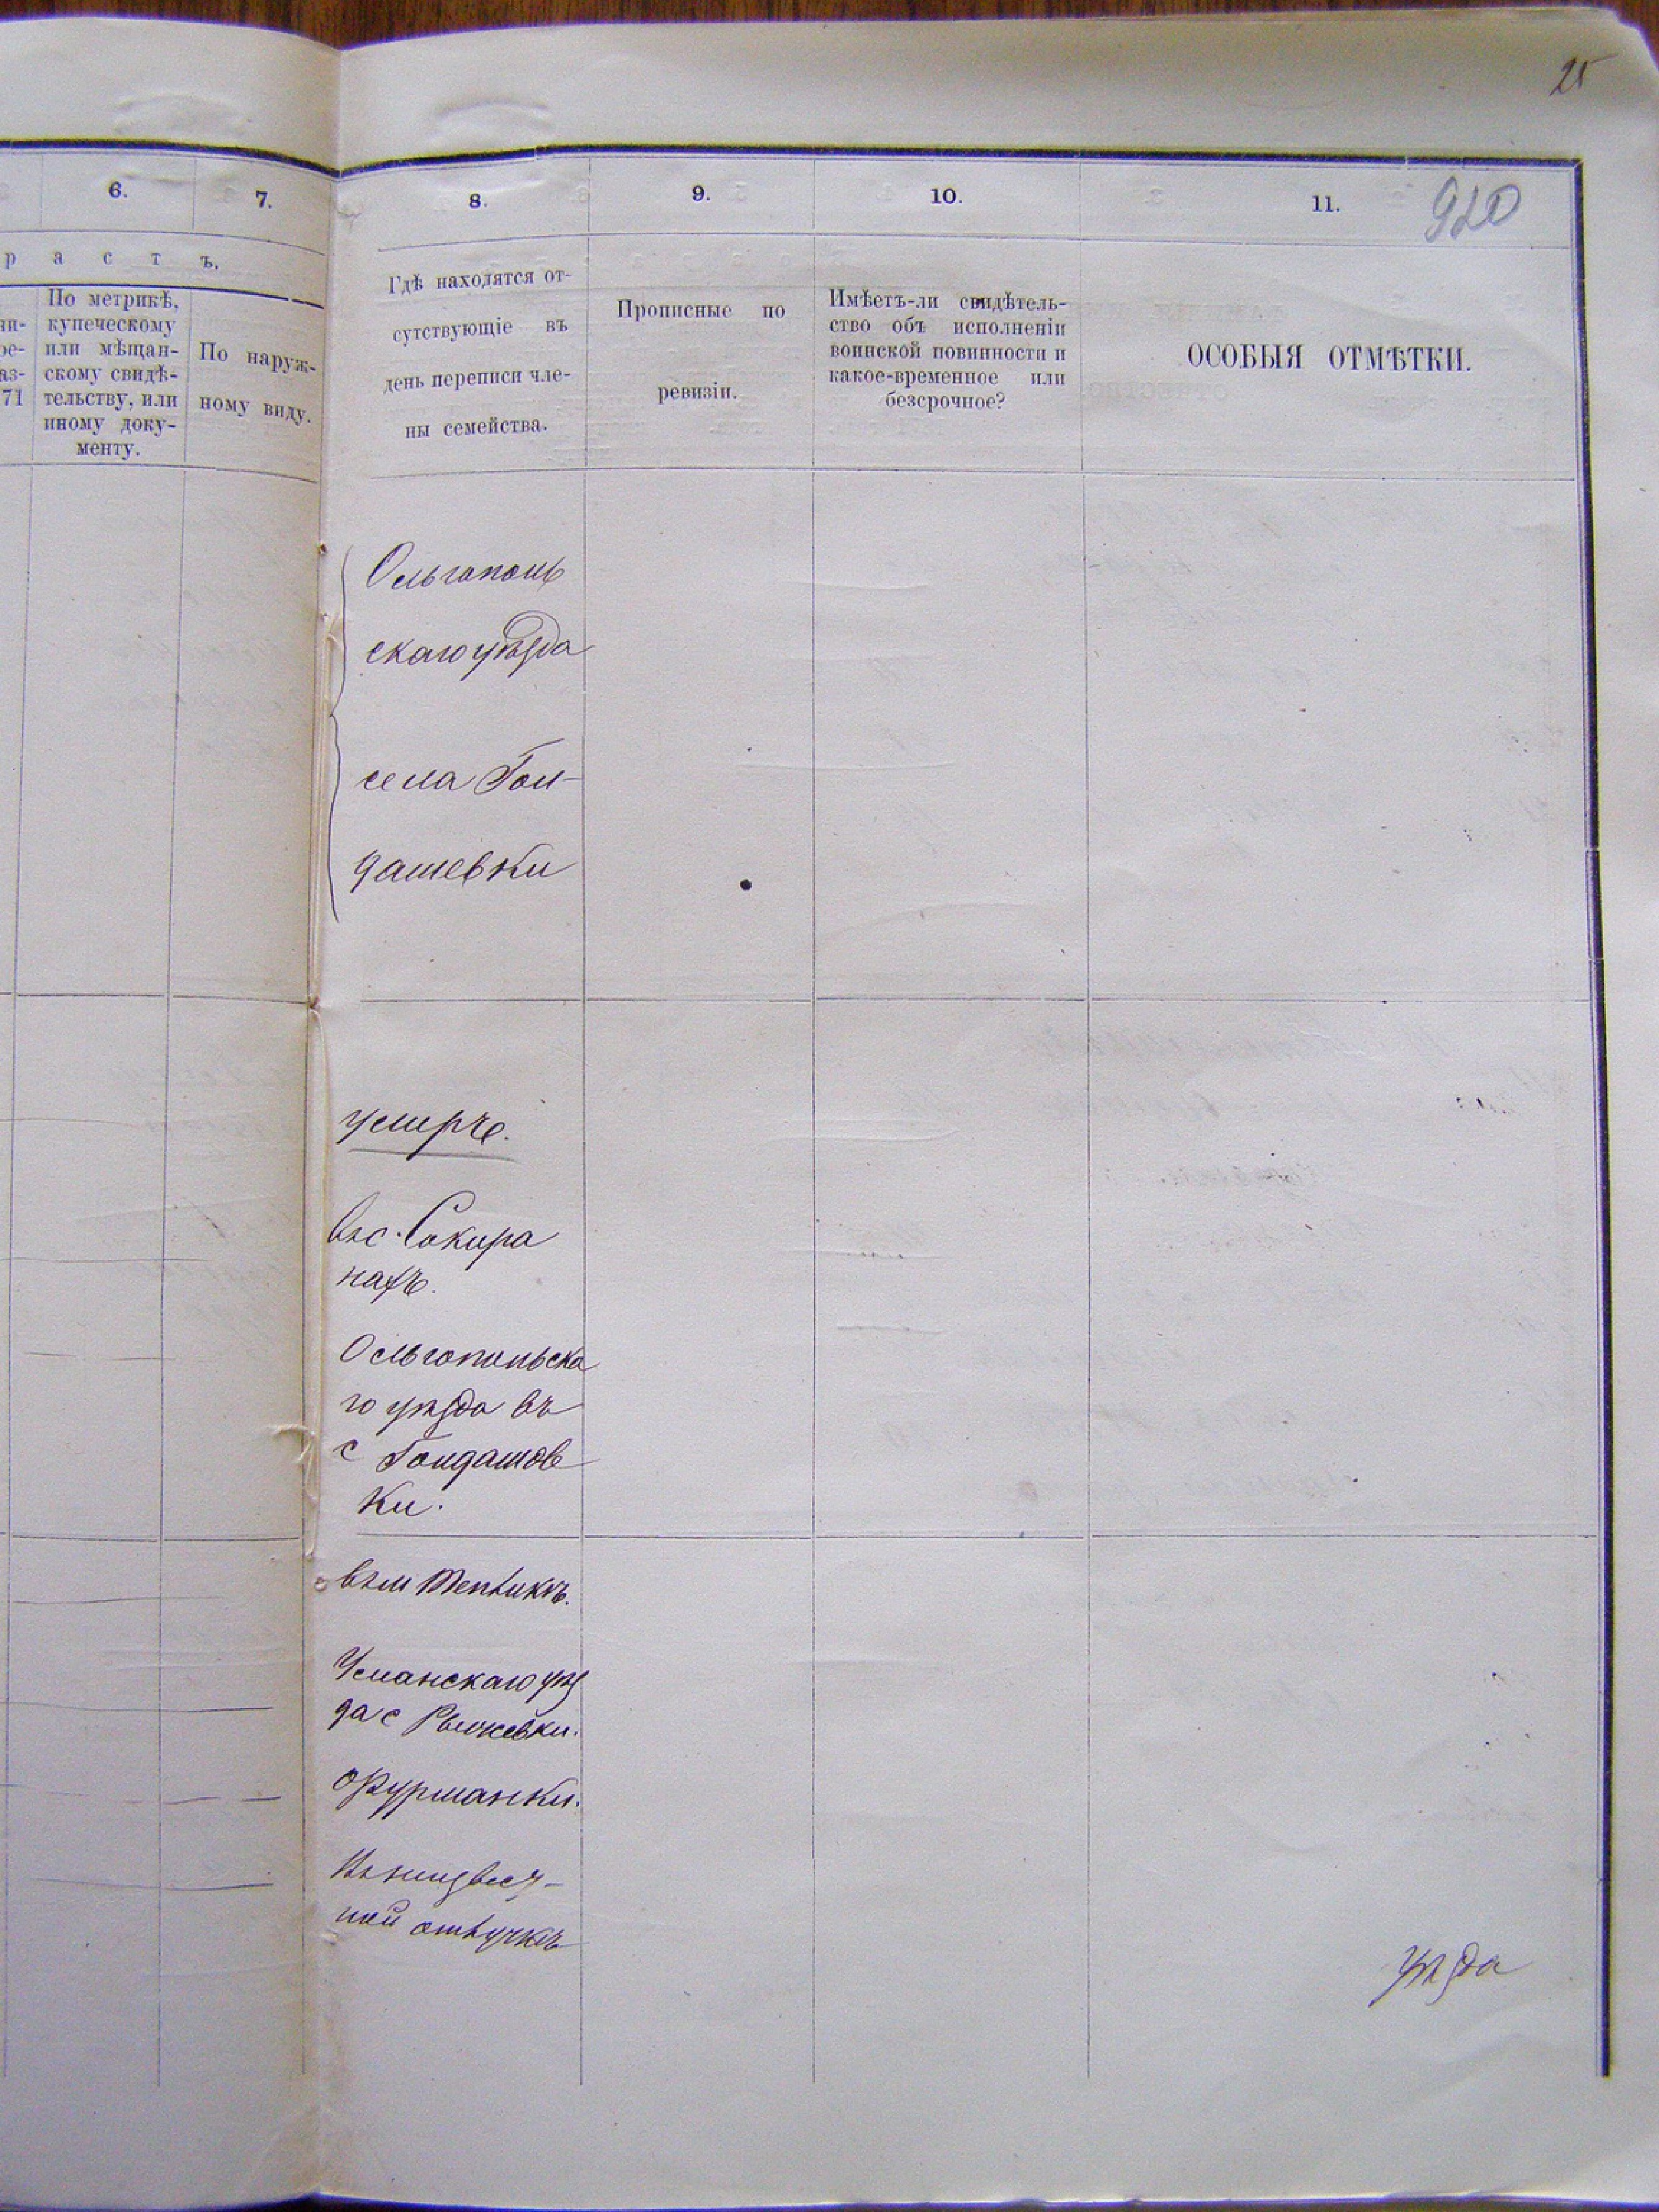 25
920
6.
7.
8.
9.
10.
11.
р а с т ъ,
По метрикѣ,
купеческому
или мѣщан-
скому свидѣ-
тельству, или
иному доку-
менту.
71
По наруж-
ному виду.
Гдѣ находятся от-
сутствующіе въ
день переписи чле-
ны семейства.
Прописные по
ревизіи.
Имѣетъ-ли свидѣтель-
ство объ исполненіи
воинской повинности и
какое-временное или
безсрочное?
ОСОБЫЯ ОТМѢТКИ.
Ольгополь
скаго уѣзда
села Гол-
дашевки
умеръ.
въ с. Сокира
нахъ.
Ольгопольска
го уѣзда въ
с Голдашов
ки.
въ м Тепликъ.
Уманскаго уѣз
да с Рыжевки.
Фурманки.
отлучкѣ
уѣзда